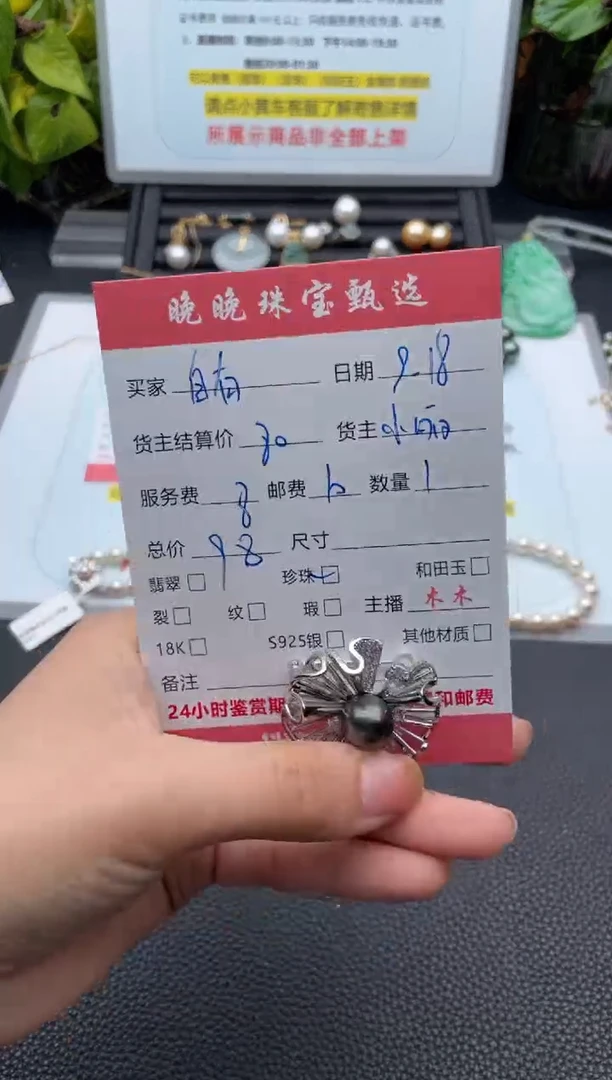 点点小黄车客服了解寄售详情
所展示商品非全部上架
晚晚珠宝甄选
买家 自有 日期 9-18
货主结算价 80 货主 小
服务费 8 邮费 10 数量 1
总价 98 尺寸
翡翠 珍珠 和田玉
裂 纹 瑕 主播 木木
18K S925银 其他材质
备注
24小时鉴赏期 和邮费